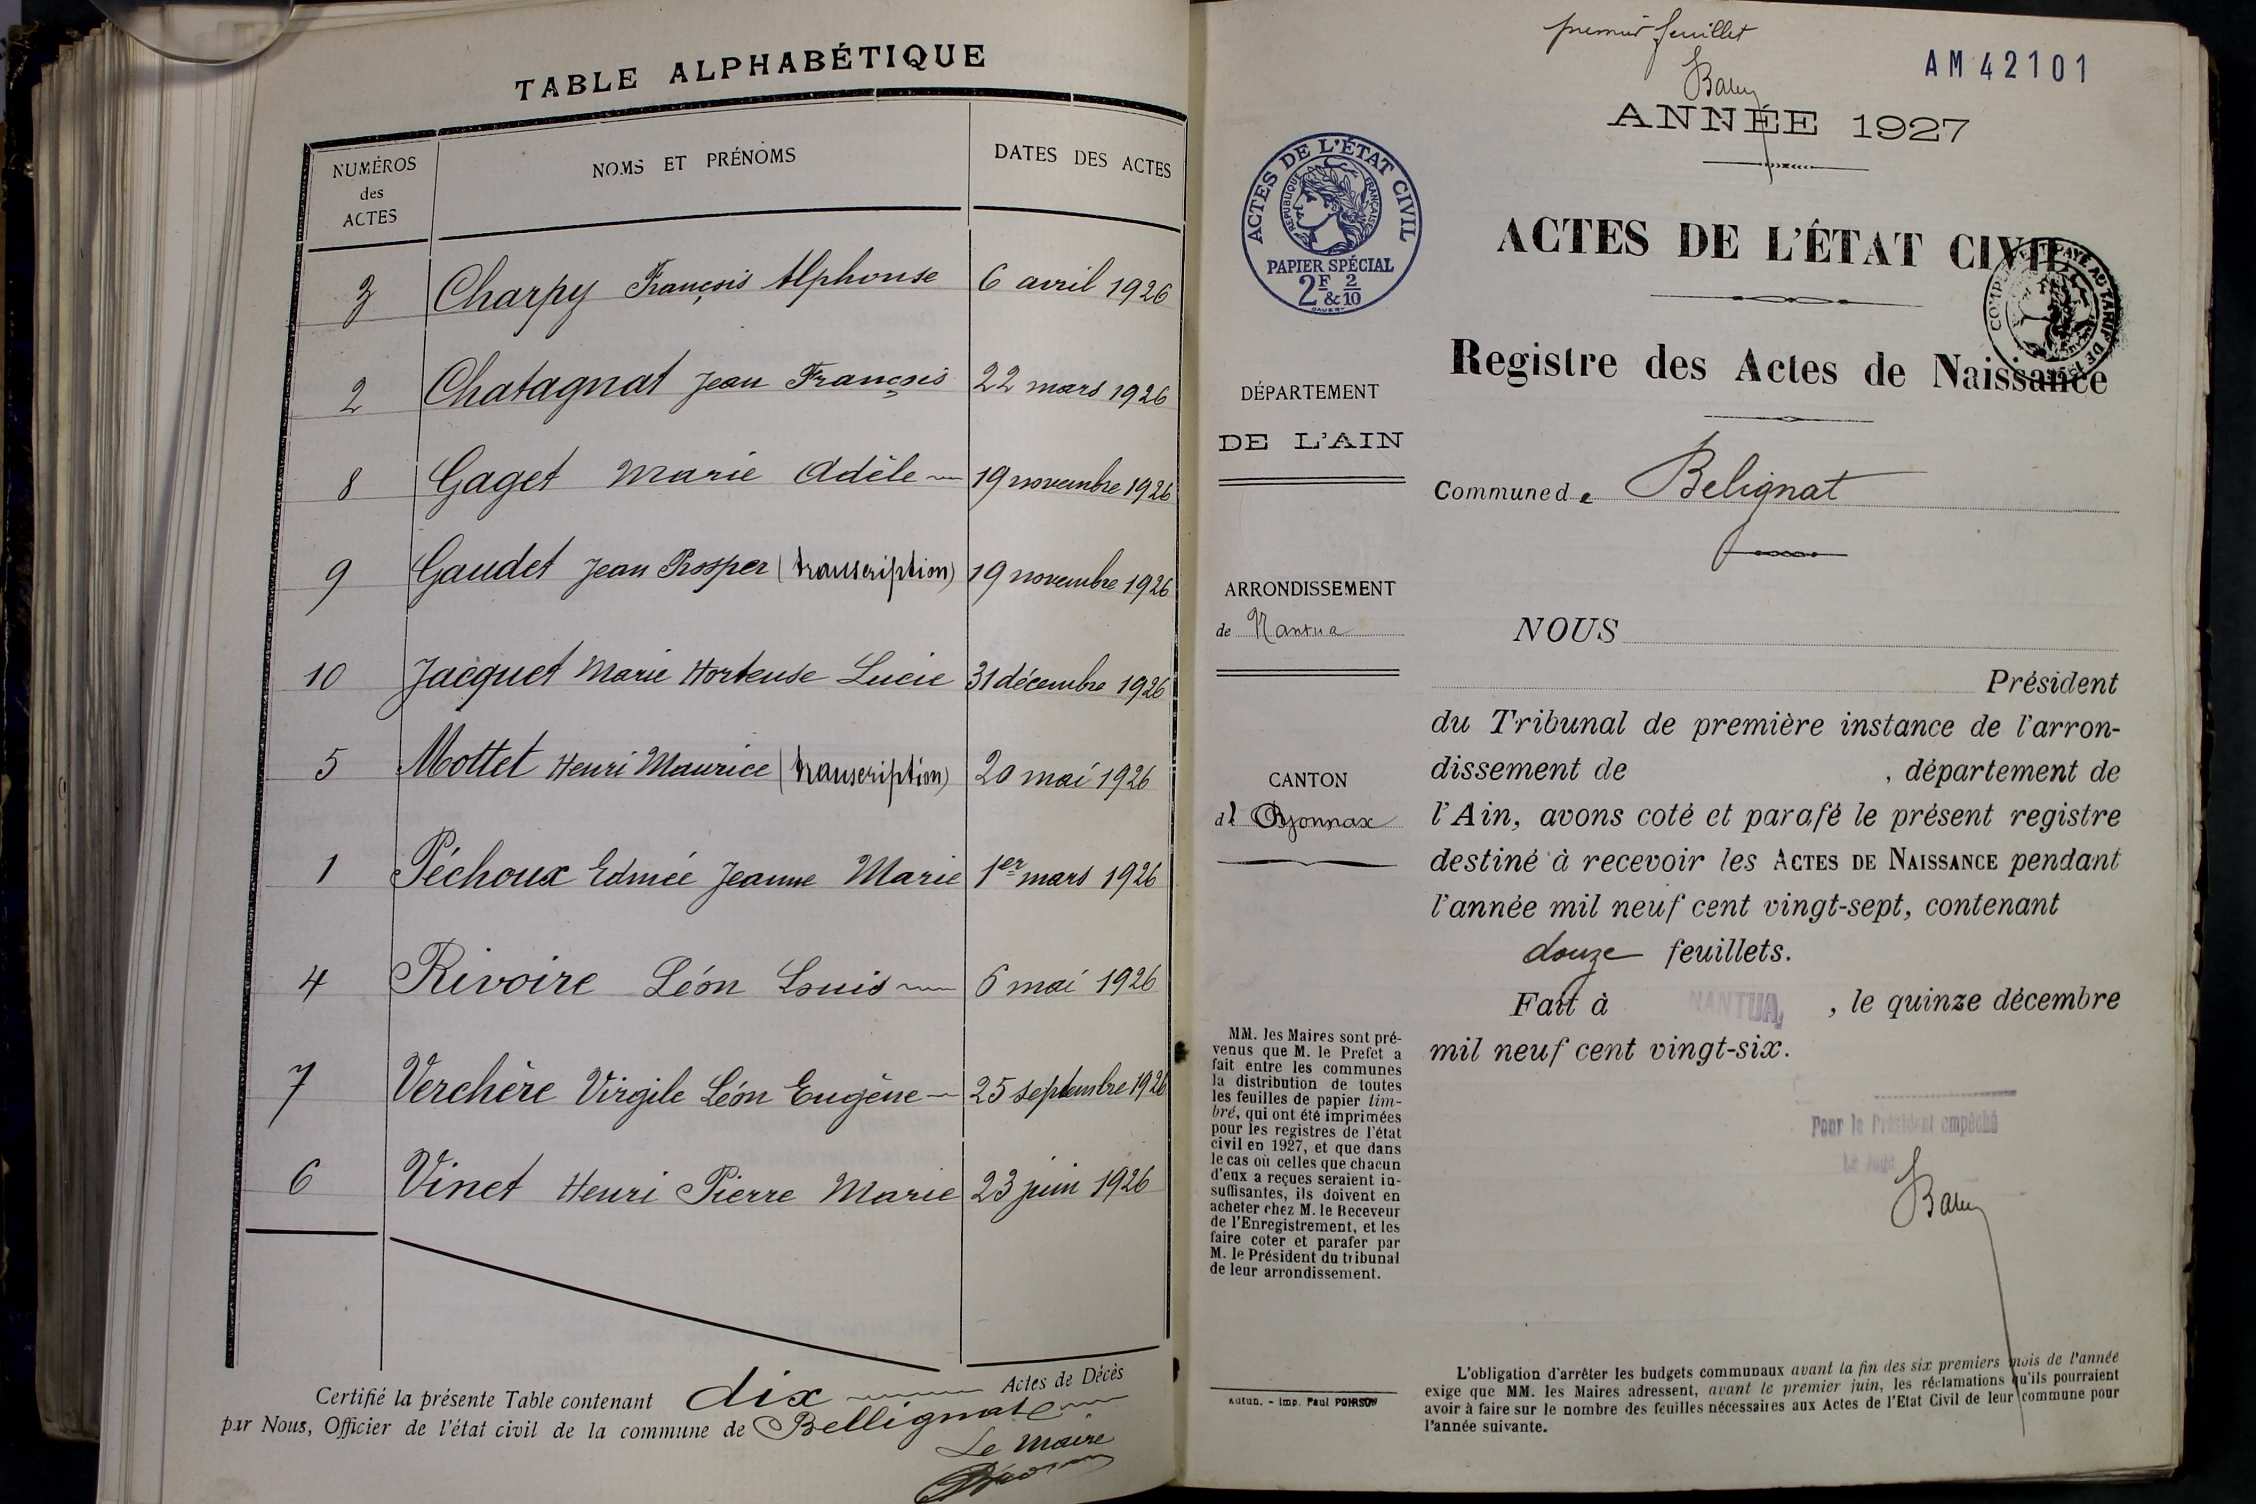 TABLE ALPHABÉTIQUE
NUMÉROS
des
ACTES
NOMS ET PRÉNOMS
DATES DES ACTES
3 Charpy François Alphonse 6 avril 1926
2 Chatagnat Jean François 22 mars 1926
8 Gaget Marie Adèle 19 novembre 1926
9 Gaudet Jean Prosper (transcription) 19 novembre 1926
10 Jacquet Marie Hortense Lucie 31 décembre 1926
5 Mottet Henri Maurice (transcription) 20 mai 1926
1 Péchoux Edmée Jeanne Marie 1er mars 1926
4 Rivoire Léon Louis 6 mai 1926
7 Verchère Virgile Léon Eugène 25 septembre 1926
6 Vinet Henri Pierre Marie 23 juin 1926
Certifié la présente Table contenant dix Actes de Décès
par Nous, Officier de l'état civil de la commune de Bellignat
Le Maire
premier feuillet
AM 42101
ANNÉE 1927
ACTES DE L'ÉTAT CIVIL
RÉPUBLIQUE FRANÇAISE
PAPIER SPÉCIAL
2F & 2/10
ACTES DE L'ÉTAT CIVIL
Registre des Actes de Naissance
Commune de Belignat
DÉPARTEMENT
DE L'AIN
ARRONDISSEMENT
de Nantua
CANTON
d'Oyonnax
MM. les Maires sont pré-
venus que M. le Prefet a
fait entre les communes
la distribution de toutes
les feuilles de papier tim-
bré, qui ont été imprimées
pour les registres de l'état
civil en 1927, et que dans
le cas où celles que chacun
d'eux a reçues seraient in-
suffisantes, ils doivent en
acheter chez M. le Receveur
de l'Enregistrement, et les
faire coter et parafer par
M. le Président du tribunal
de leur arrondissement.
Autun. - Imp. Paul POIRSON
NOUS
Président
du Tribunal de première instance de l'arron-
dissement de , département de
l'Ain, avons coté et parafé le présent registre
destiné à recevoir les ACTES DE NAISSANCE pendant
l'année mil neuf cent vingt-sept, contenant
douze feuillets.
Fait à NANTUA, , le quinze décembre
mil neuf cent vingt-six.
Pour le Président empêché
Le Juge
L'obligation d'arrêter les budgets communaux avant la fin des six premiers mois de l'année
exige que MM. les Maires adressent, avant le premier juin, les réclamations qu'ils pourraient
avoir à faire sur le nombre des feuilles nécessaires aux Actes de l'Etat Civil de leur commune pour
l'année suivante.